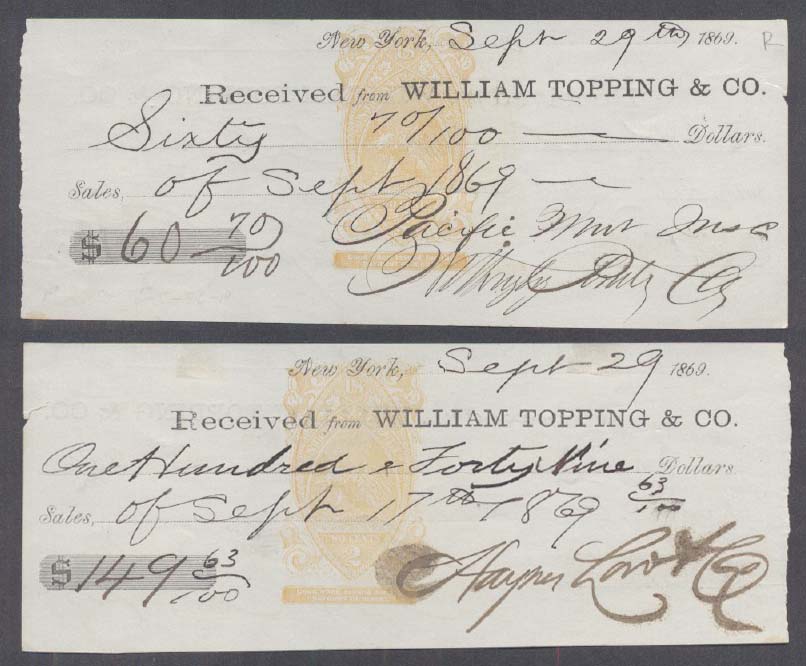 New York, Sept 29th 1869. R
Received from WILLIAM TOPPING & CO.
Sixty 70/100 — Dollars.
Sales, of Sept 1869 —
$ 60 70/100 Pacific Mut Insc
Co
New York, Sept 29 1869.
Received from WILLIAM TOPPING & CO.
One Hundred & Forty Nine Dollars
63/100
Sales, of Sept 17th 1869
TWO CENTS
2
$ 149 63/100 Haynes Lord & Co